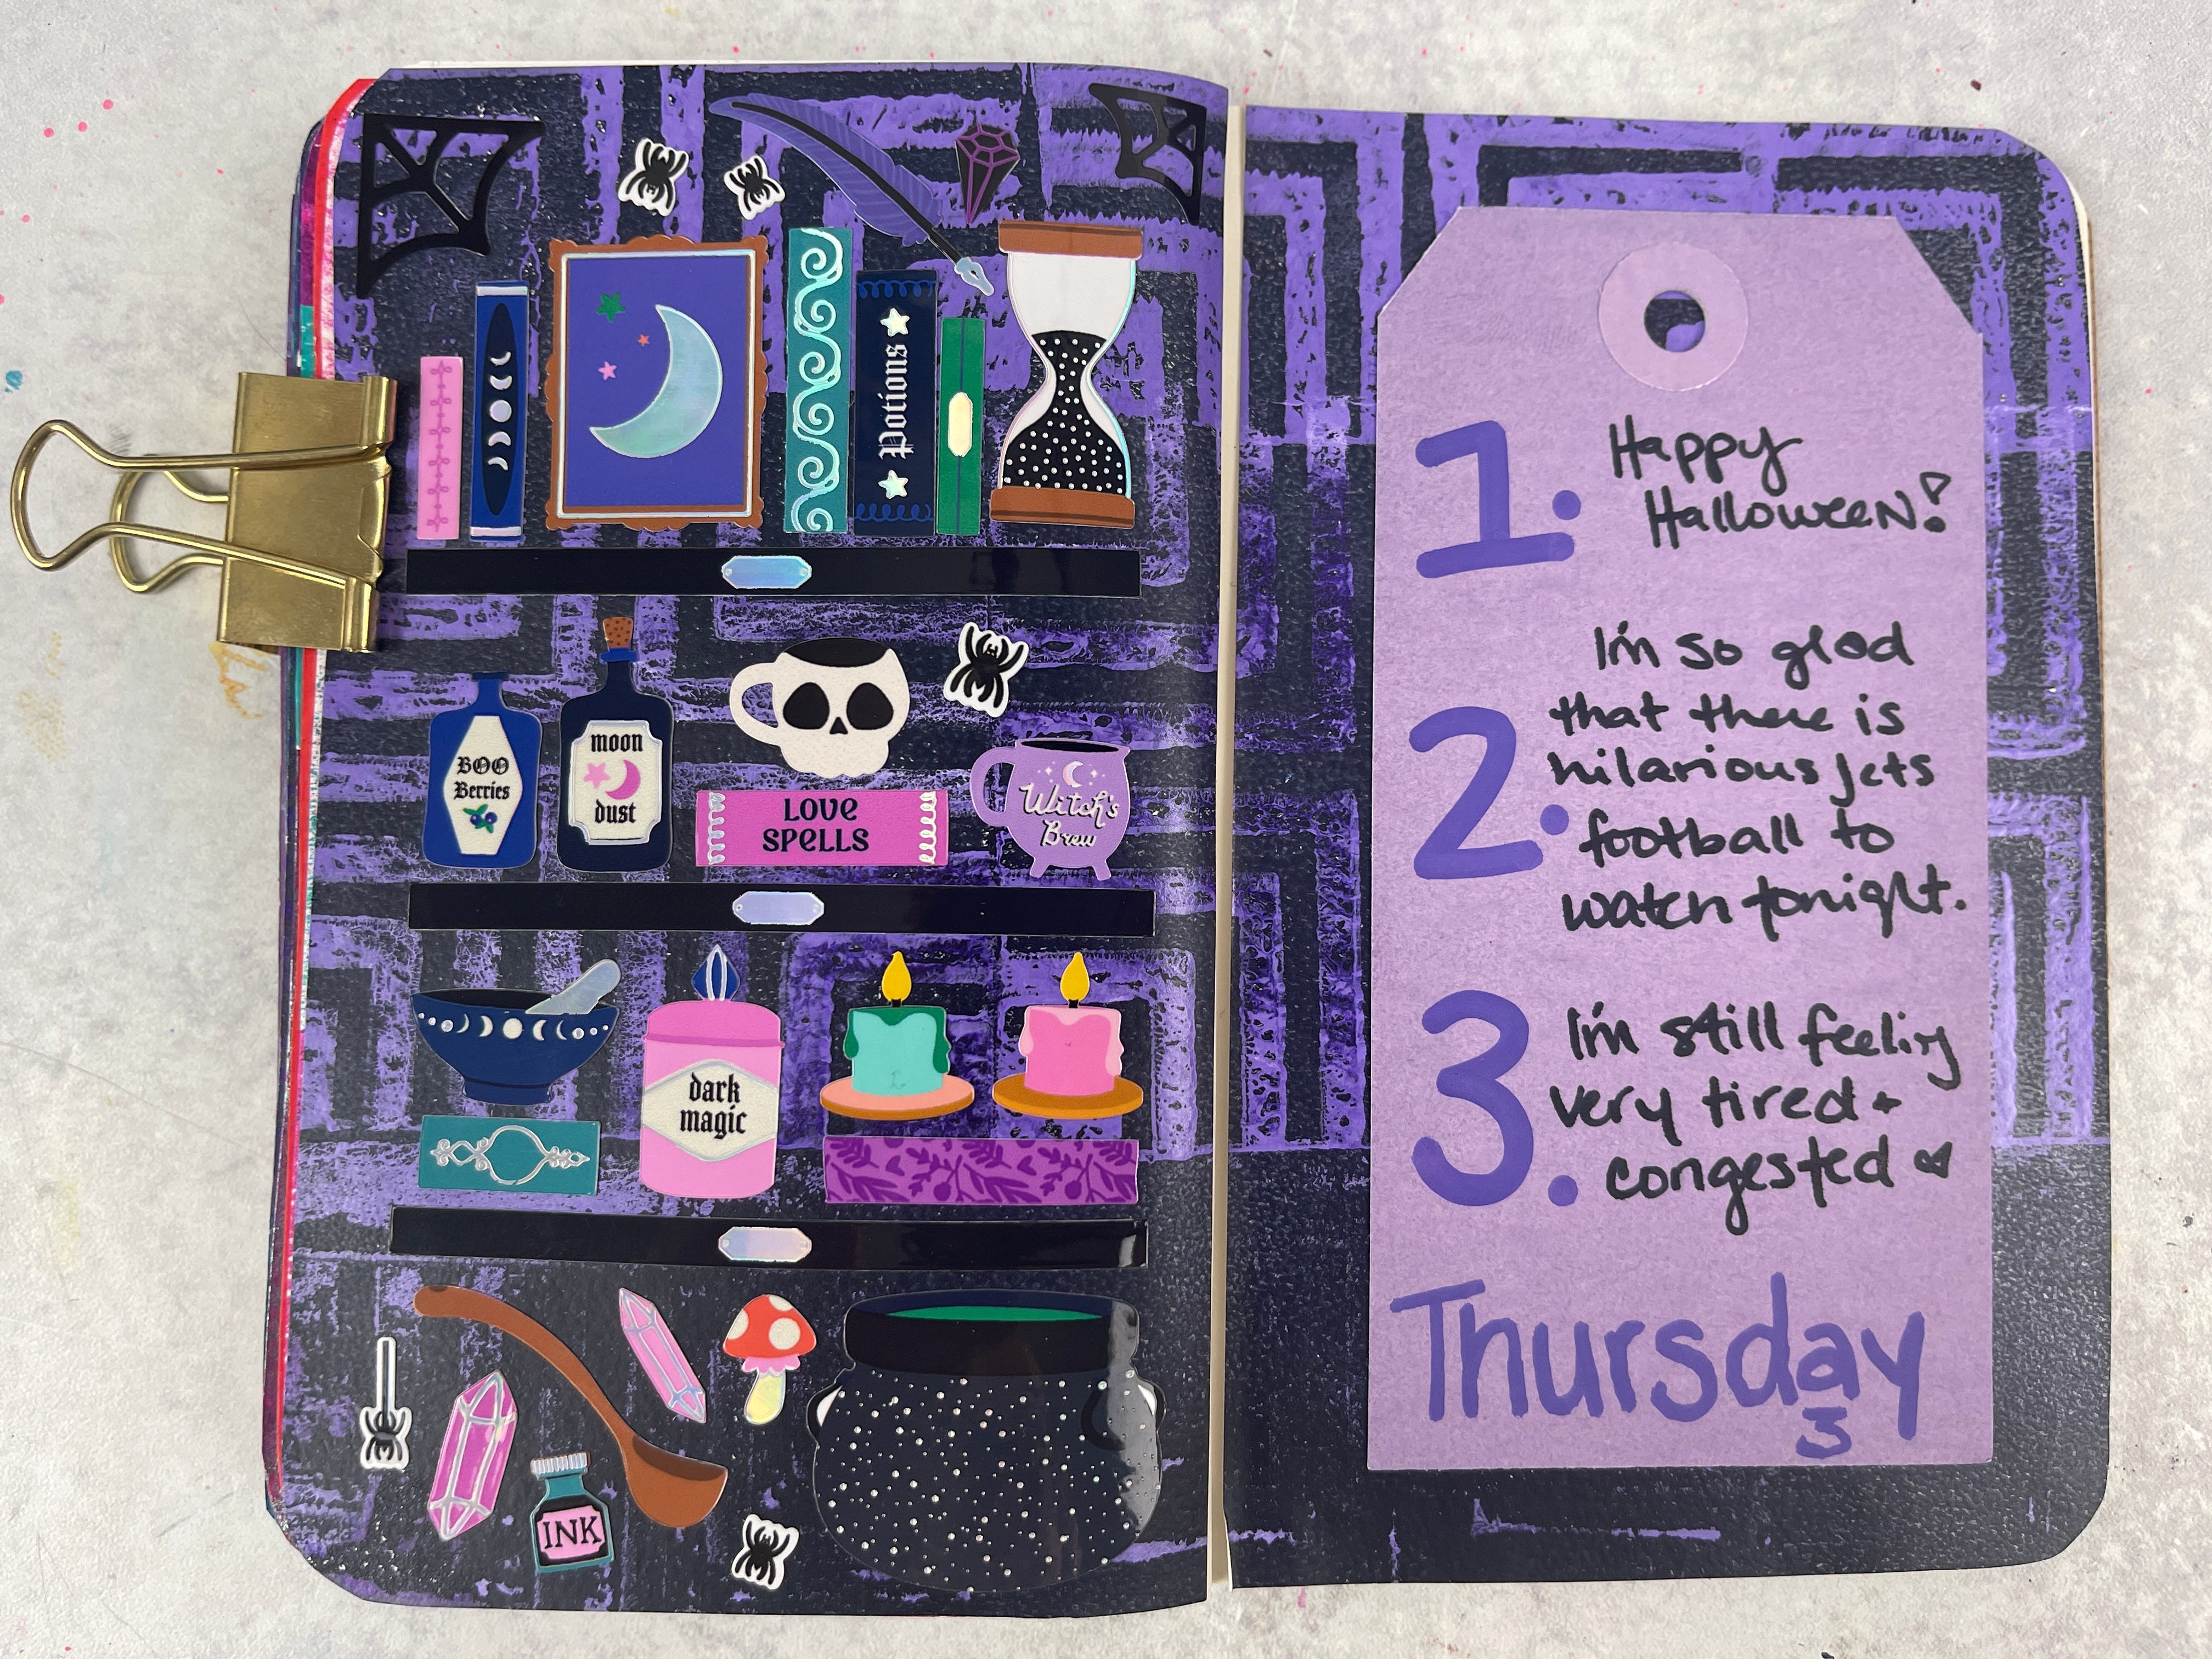 Potions
BOO
Berries
moon
dust
LOVE
SPELLS
Witch's
Brew
dark
magic
INK
1. Happy
Halloween!
2. I'm so glad
that there is
hilarious Jets
football to
watch tonight.
3. I'm still feeling
very tired +
congested
Thursday
3